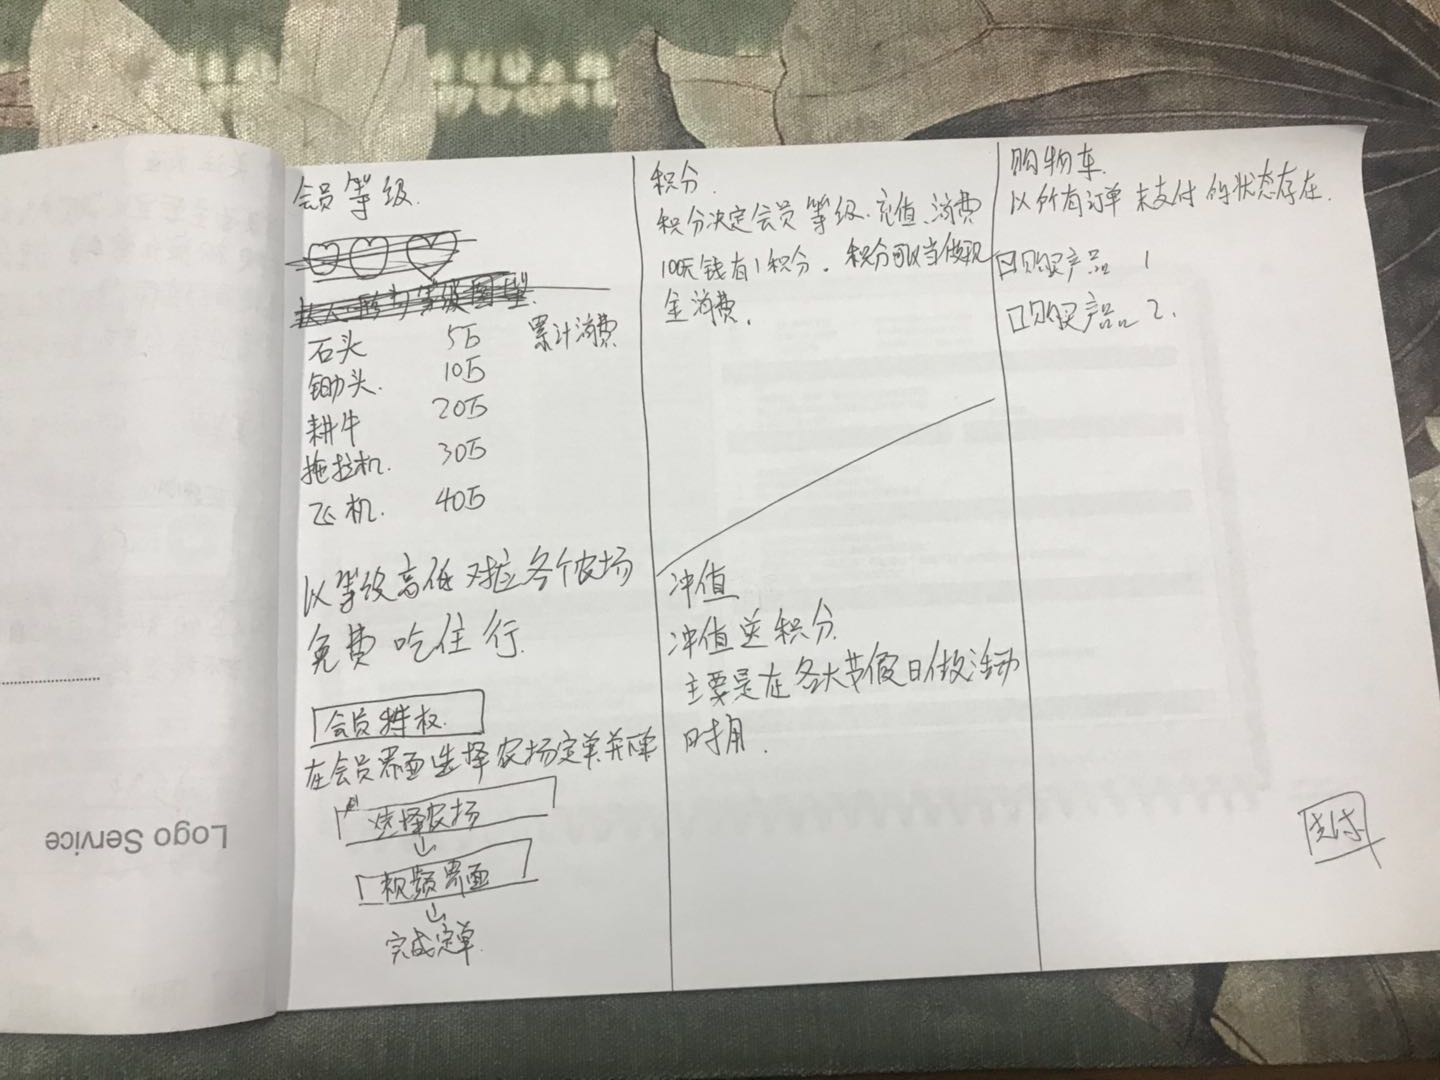 会员等级.
石头 5万 累计消费
锄头. 10万
耕牛 20万
拖拉机. 30万
飞机. 40万
以等级高低对应各个农场
免费吃住行.
会员特权.
在会员界面选择农场定单并
选择农场
↓
视频界面
↓
完成定单.
积分.
积分决定会员等级.充值、消费
100元钱有1积分.积分可以当做现
金消费.
冲值
冲值送积分.
主要是在各大节假日做活动
时用.
购物车.
以所有订单未支付的状态存在.
购买产品 1
购买产品 2.
支付
Logo Service